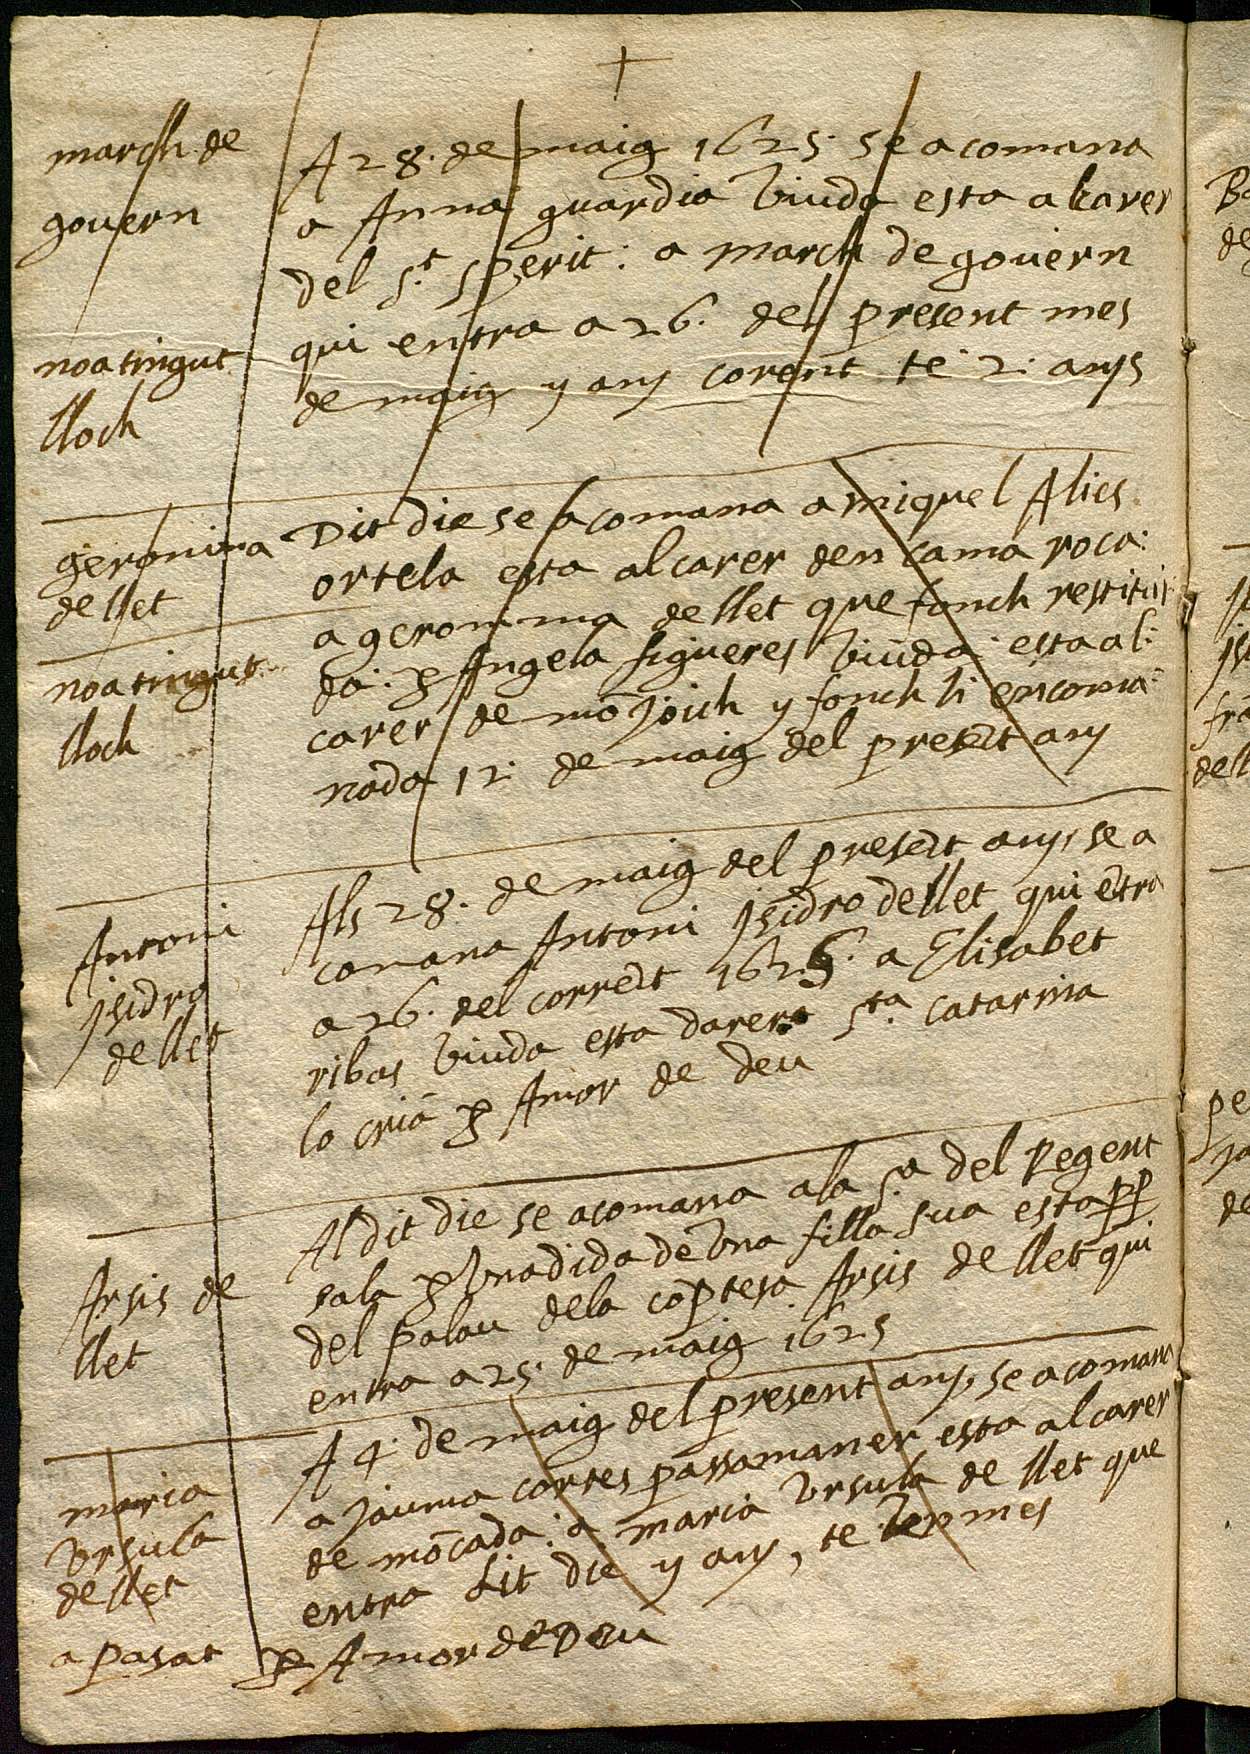 march de
govern
A 28. de maig 1625. se acomana
a Anna guardia viuda esta al carer
del st. sperit: a march de govern
qui entra a 26. del present mes
de maig y any corent te 2. anys
no a tingut
lloch
geronima
de llet
Dit die se acomana a miquel Alies
ortela esta al carer den cama roca:
a geronima de llet que fonch restitui
da: p Angela figueres viuda esta al:
carer de mō joich y fonch li encoma
nada 12. de maig del presēt any
no a tingut
lloch
Antoni
jsidro
de llet
Als 28. de maig del presēt any, se a
comana Antoni jsidro de llet qui ētra
a 26. del corrēt 1625. a Elisabet
ribas viuda esta darera sta. catarina
lo criā p Amor de deu
Arsis de
llet
Al dit die se acomana a la sa. del Regent
sala p una dida de una filla sua esta pp
del palau de la cōptesa Arsis de llet qui
entra a 25. de maig 1625
maria
ursula
de llet
a pasat
A 4. de maig del present any, se acomana
a jauma cortes passamaner esta al carer
de mōcada: a maria ursula de llet que
entra dit die y any, te un mes
p Amor de Deu
Ba
de
js
fra
de ll
pe
ja
de